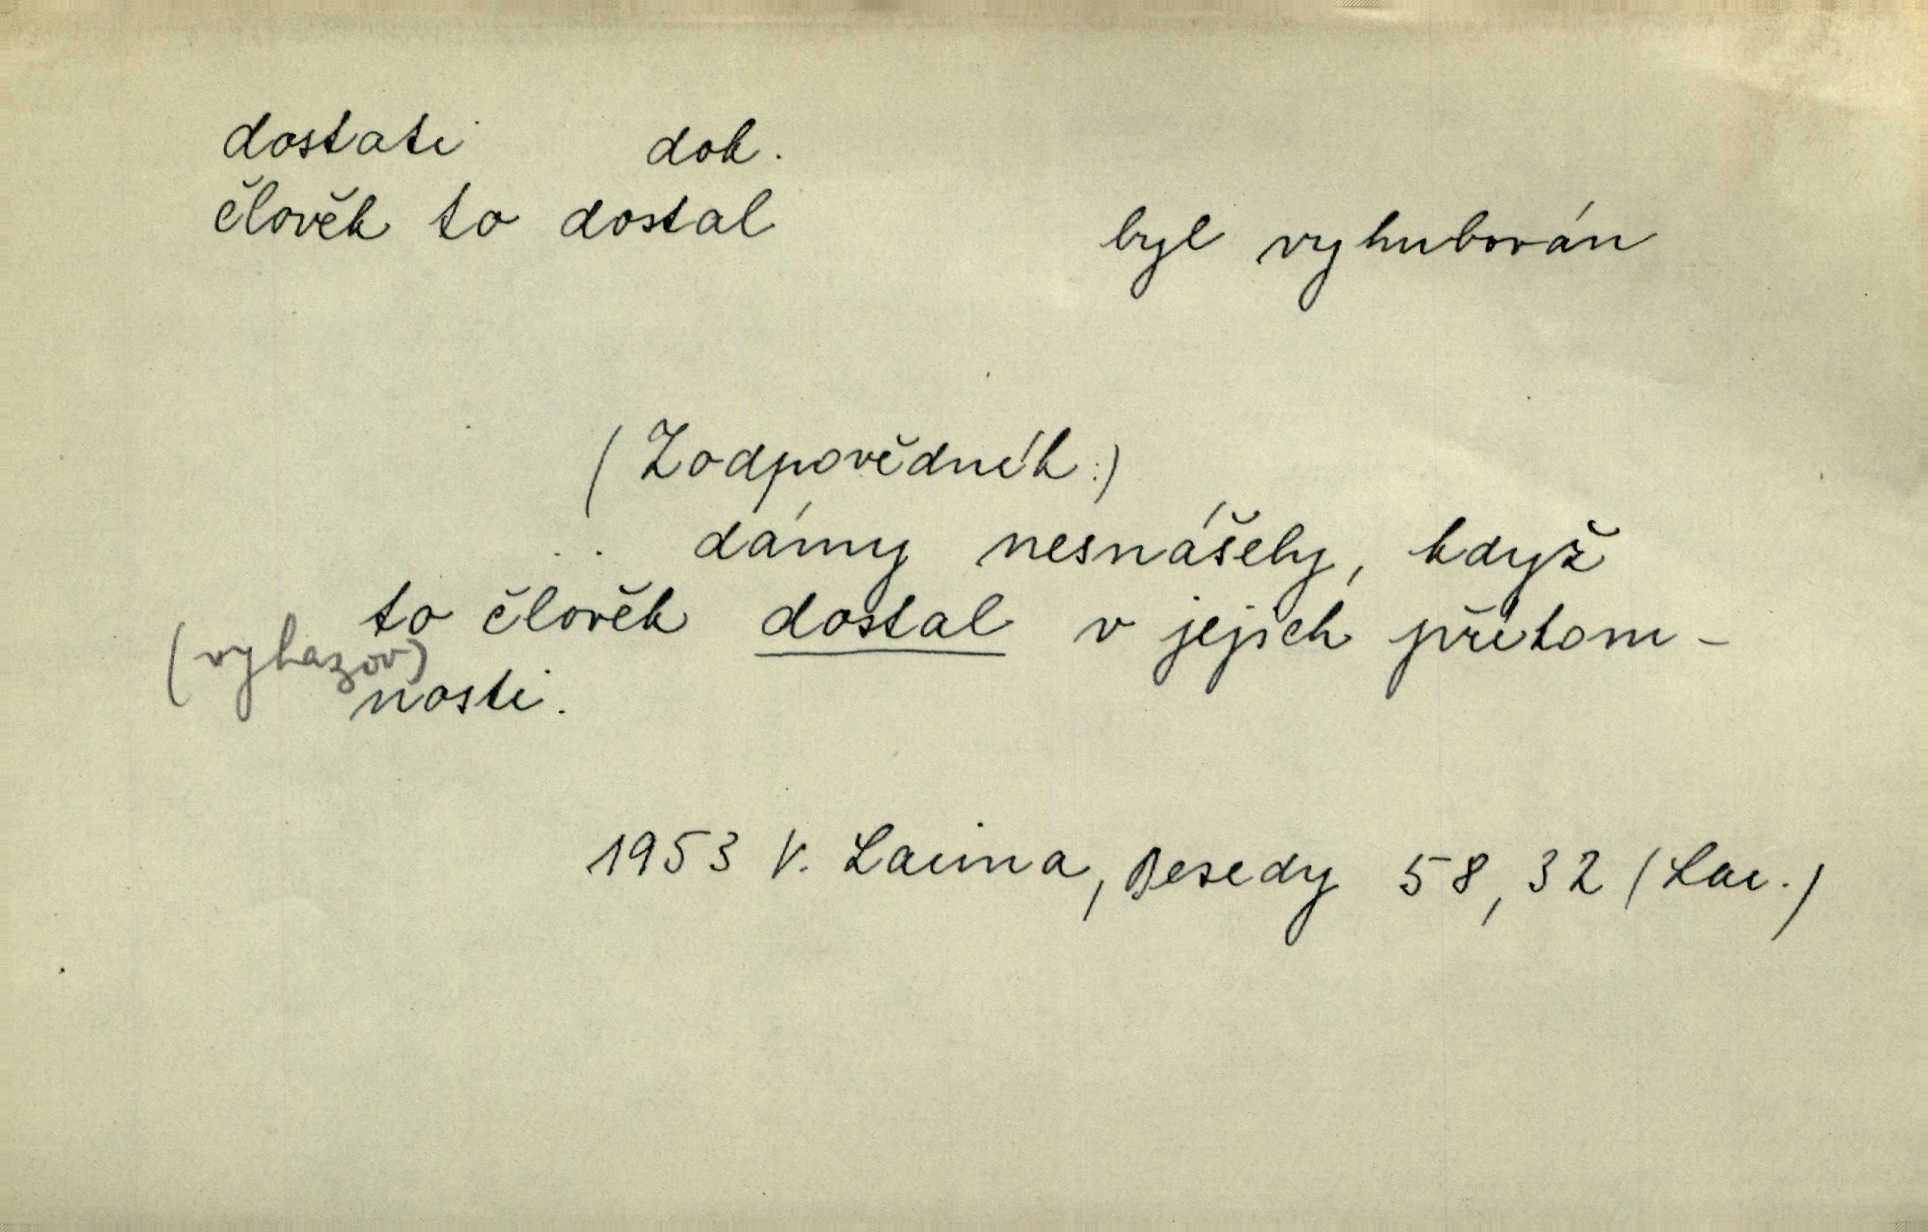 dostati dok.
člověk to dostal byl vyhubován
(Zodpovědník:)
.. dámy nesnášely, když
to člověk dostal v jejich přítom-
(vyhazov)
nosti.
1953 V. Lacina, Besedy 58, 32 (Lac.)